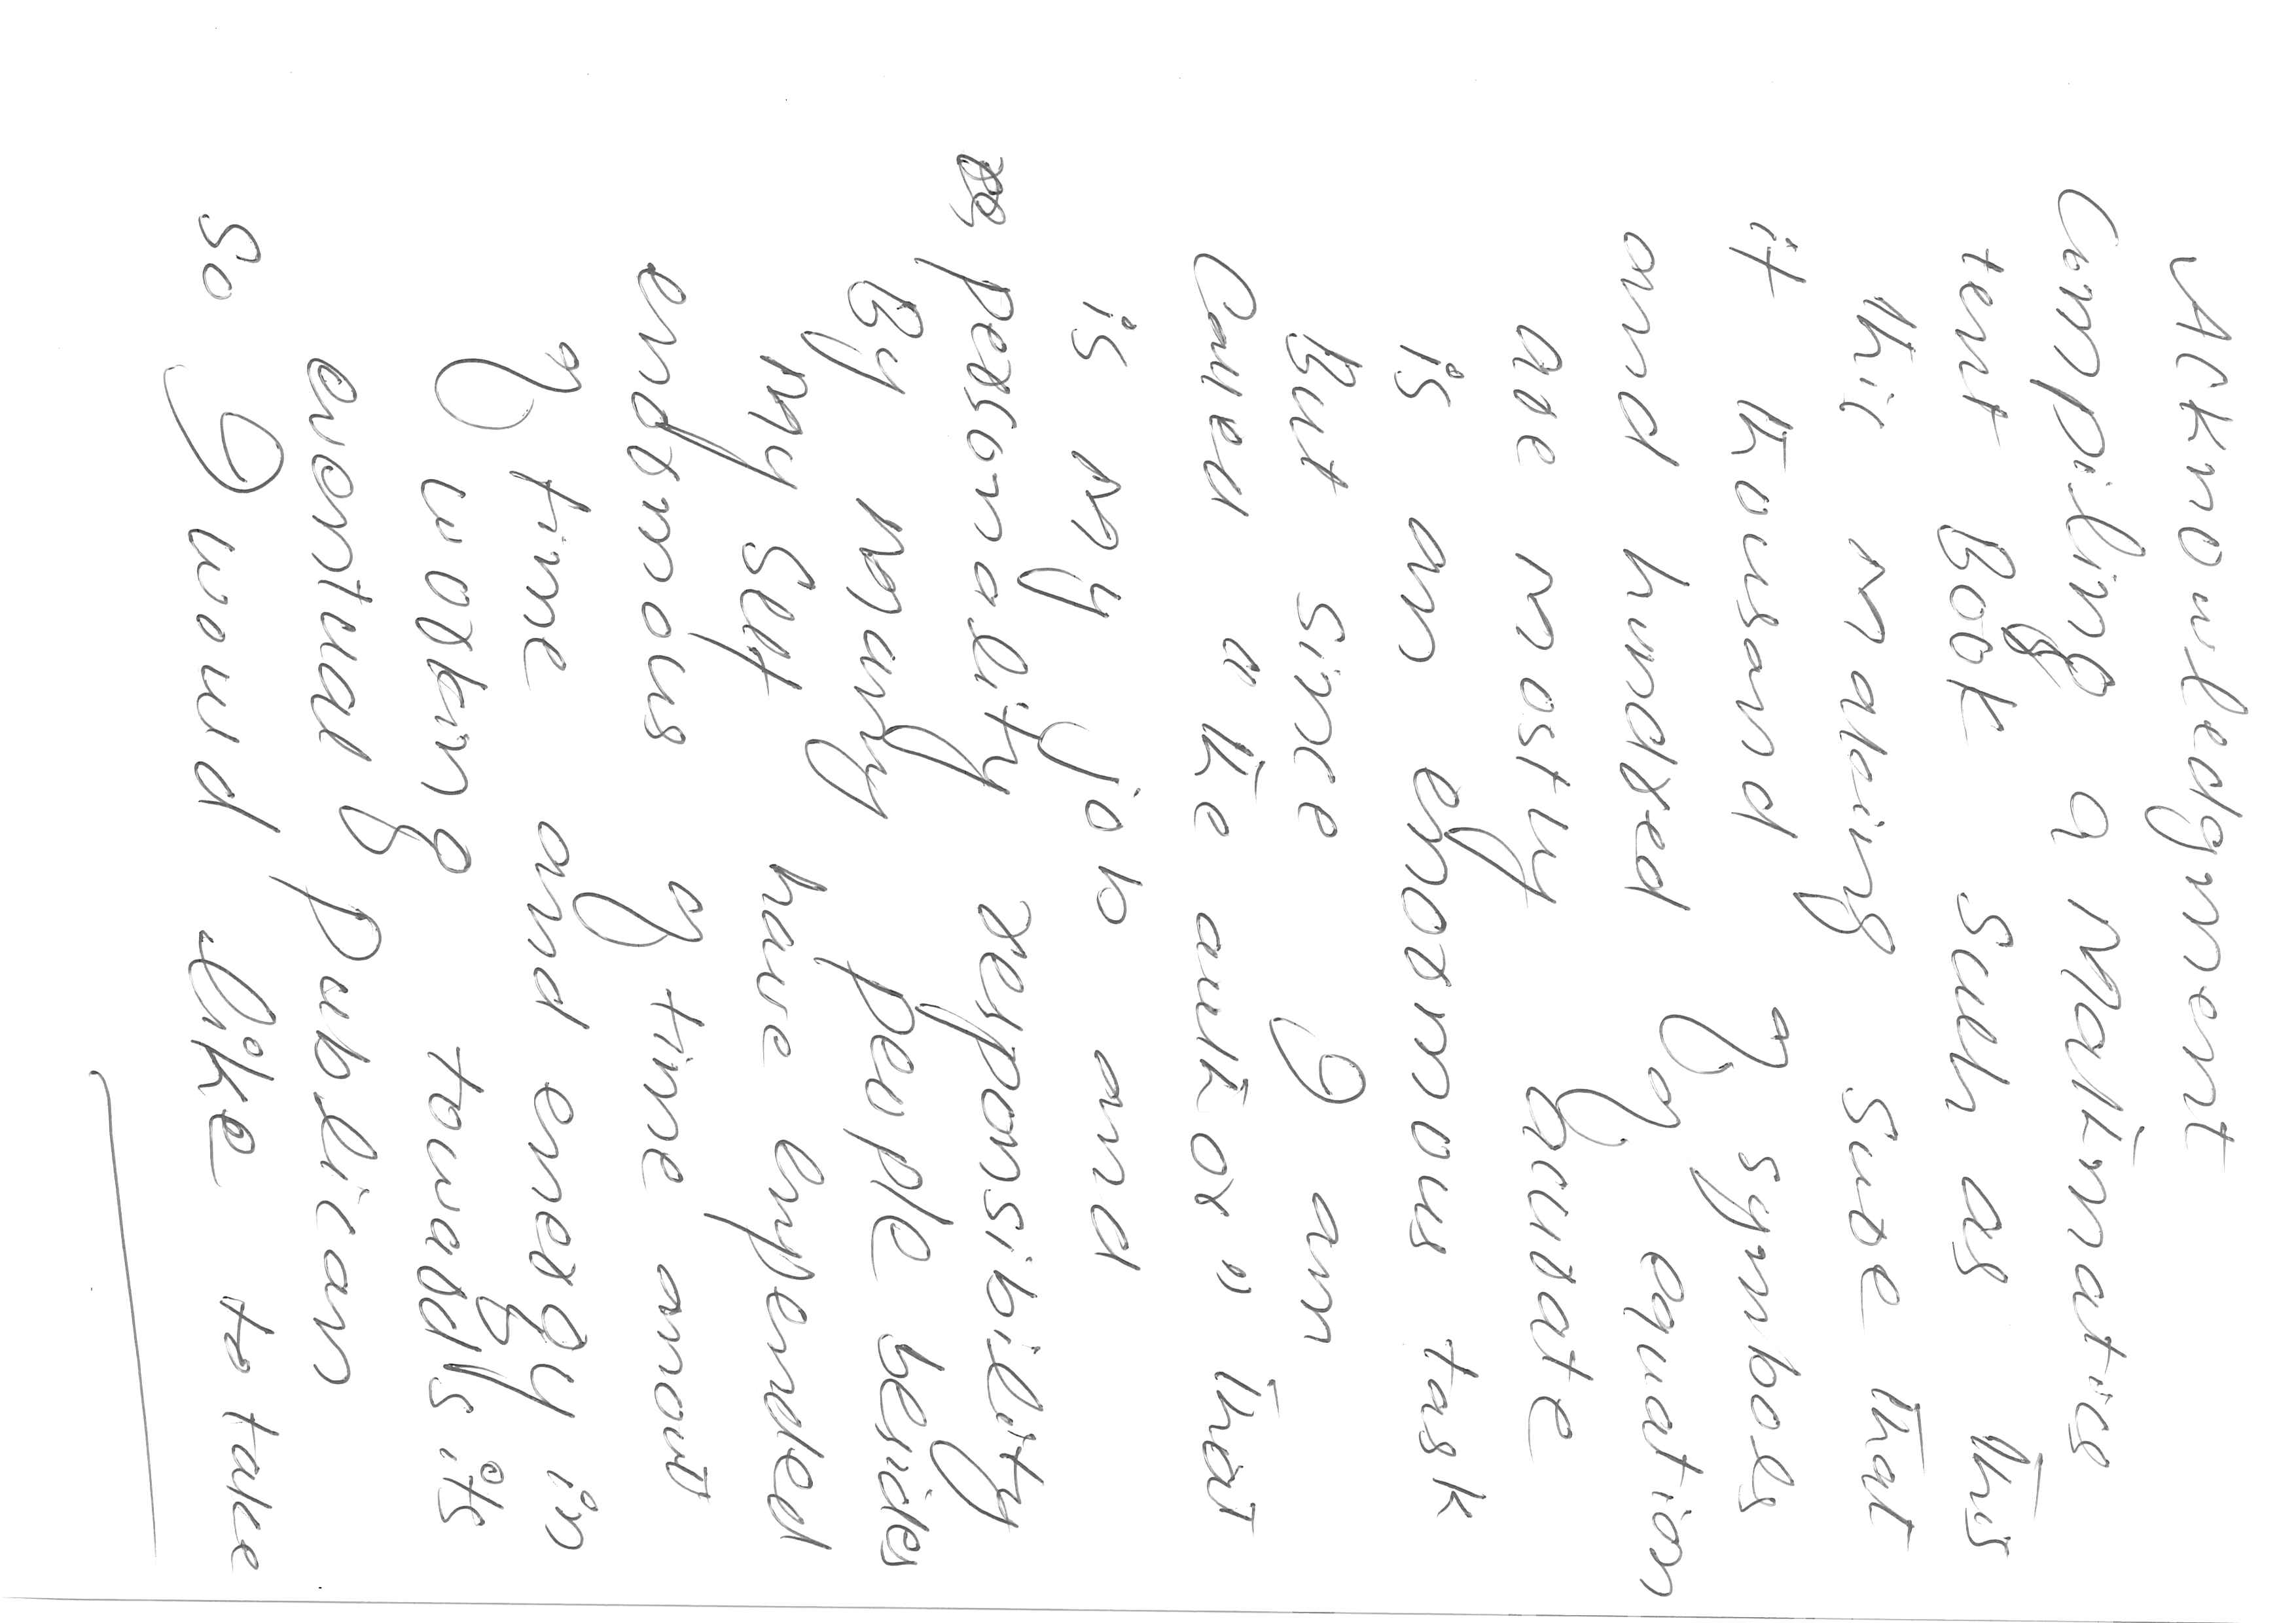 Acknowledgment
Compiling a Mathmatics
tent Book such as this
this making sure that
it thousand of symbols
and hundred of equation
are mostly acurate
is an enormous task
But since I am
Called "the author" that
is my job and
personality responsibility
By many people besides
my self have expended
enormous of time amout
of time and energy in
working towards its
eventual publican
so I would like to take